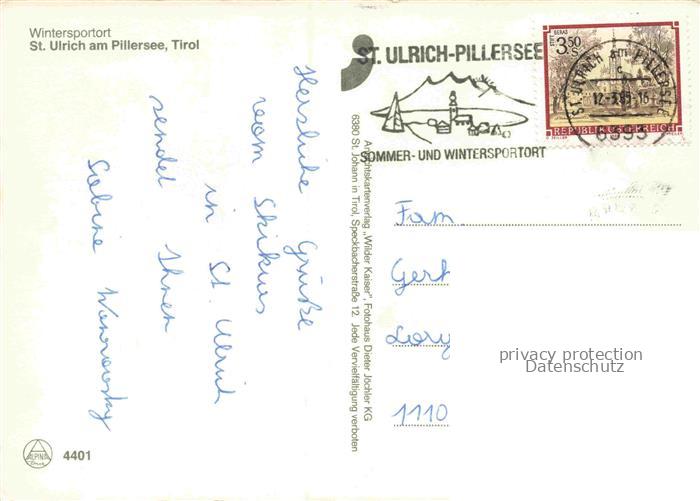 Wintersportort
St. Ulrich am Pillersee, Tirol
Herzliche Grüße
vom Skikurs
in St. Ulrich
sendet Ihnen
Sabine
ALPINA
4401
Ansichtskartenverlag „Wilder Kaiser", Fotohaus Dieter Jöchler KG
6380 St. Johann in Tirol, Speckbacherstraße 12. Jede Vervielfältigung verboten
ST. ULRICH-PILLERSEE
SOMMER- UND WINTERSPORTORT
STIFT GERAS
3.50
S
REPUBLIK ÖSTERREICH
ST. ULRICH AM PILLERSEE
6393
Fam.
Gert
Lory
1110
privacy protection
Datenschutz